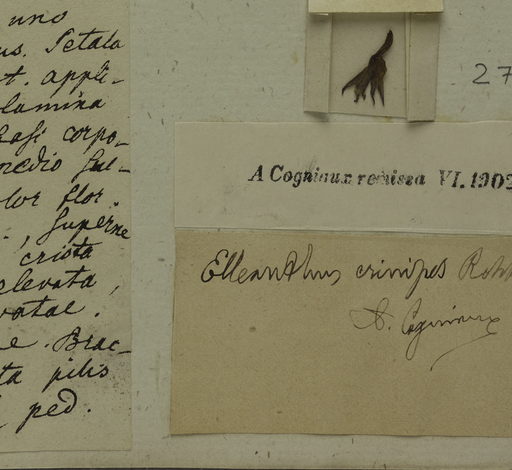 uno
us. Petala
t. appli-
lamina
basi corpo-
medio ful-
lor flor.
., superne
crista
elevata,
vatae.
e. Brac-
ta pilis
ped.
27
A Cogniaux remissa VI. 1902
Elleanthus crinipes Rchb
A. Cogniaux